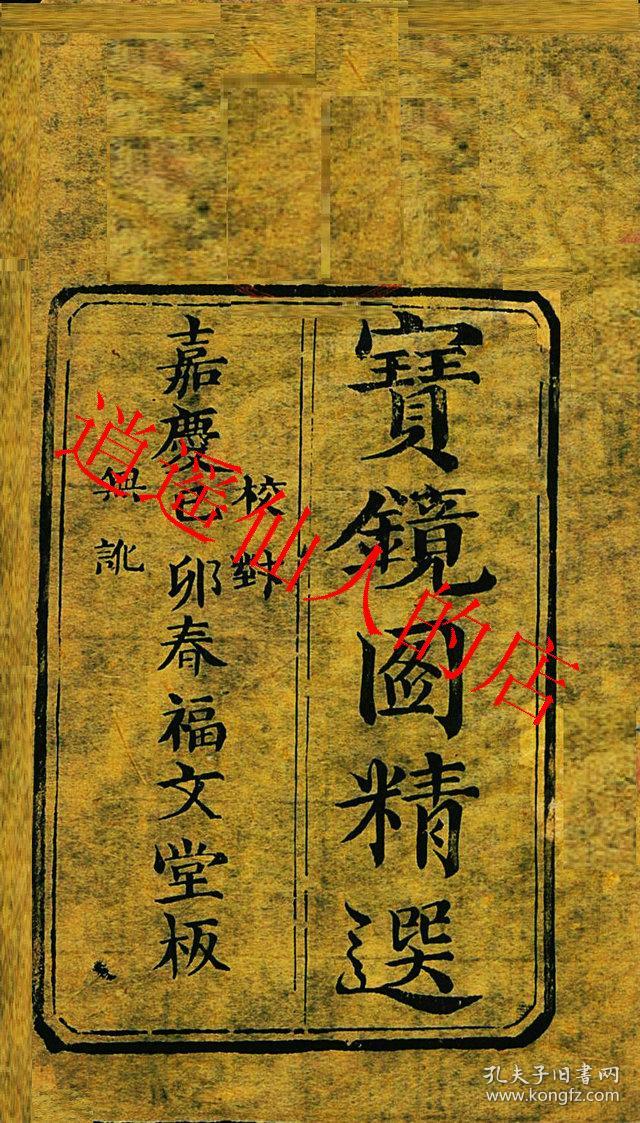 寶鏡圖精選
校對
嘉慶己卯春福文堂板
無訛
逍遥仙人的店
孔夫子旧书网
www.kongfz.com